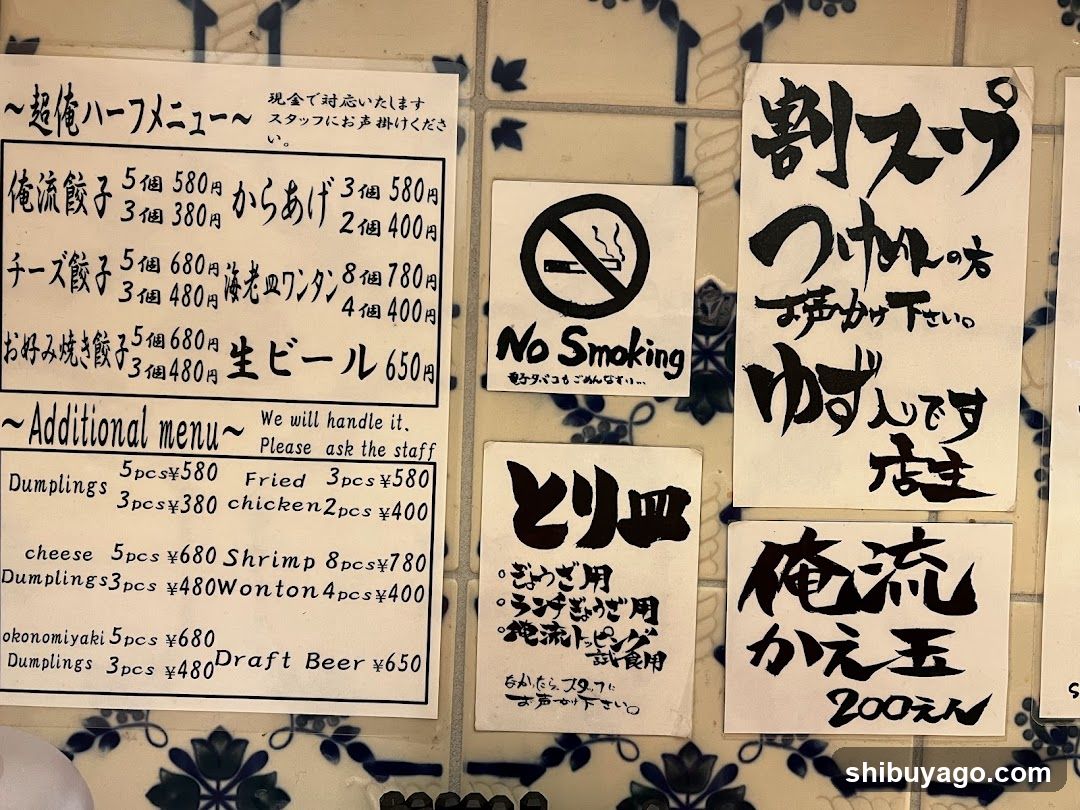 ～超俺ハーフメニュー～
現金で対応いたします
スタッフにお声掛けくださ
い。
俺流餃子 5個 580円 からあげ 3個 580円
3個 380円 2個 400円
チーズ餃子 5個 680円 海老皿ワンタン 8個 780円
3個 480円 4個 400円
お好み焼き餃子 5個 680円 生ビール 650円
3個 480円
～Additional menu～
We will handle it.
Please ask the staff
Dumplings 5pcs¥580 Fried 3pcs¥580
3pcs¥380 chicken 2pcs ¥400
cheese 5pcs ¥680 Shrimp 8pcs¥780
Dumplings 3pcs ¥480 Wonton 4pcs ¥400
okonomiyaki 5pcs ¥680
Dumplings 3pcs ¥480 Draft Beer ¥650
No Smoking
電子タバコもごめんなすい…
とり皿
。ぎょうざ用
。ランチぎょうざ用
。俺流トッピング
試食用
なかったら、スタッフに
お声かけ下さい。
割スープ
つけめんの方
お声かけ下さい。
ゆず入りです
店主
俺流
かえ玉
200えん
shibuyago.com